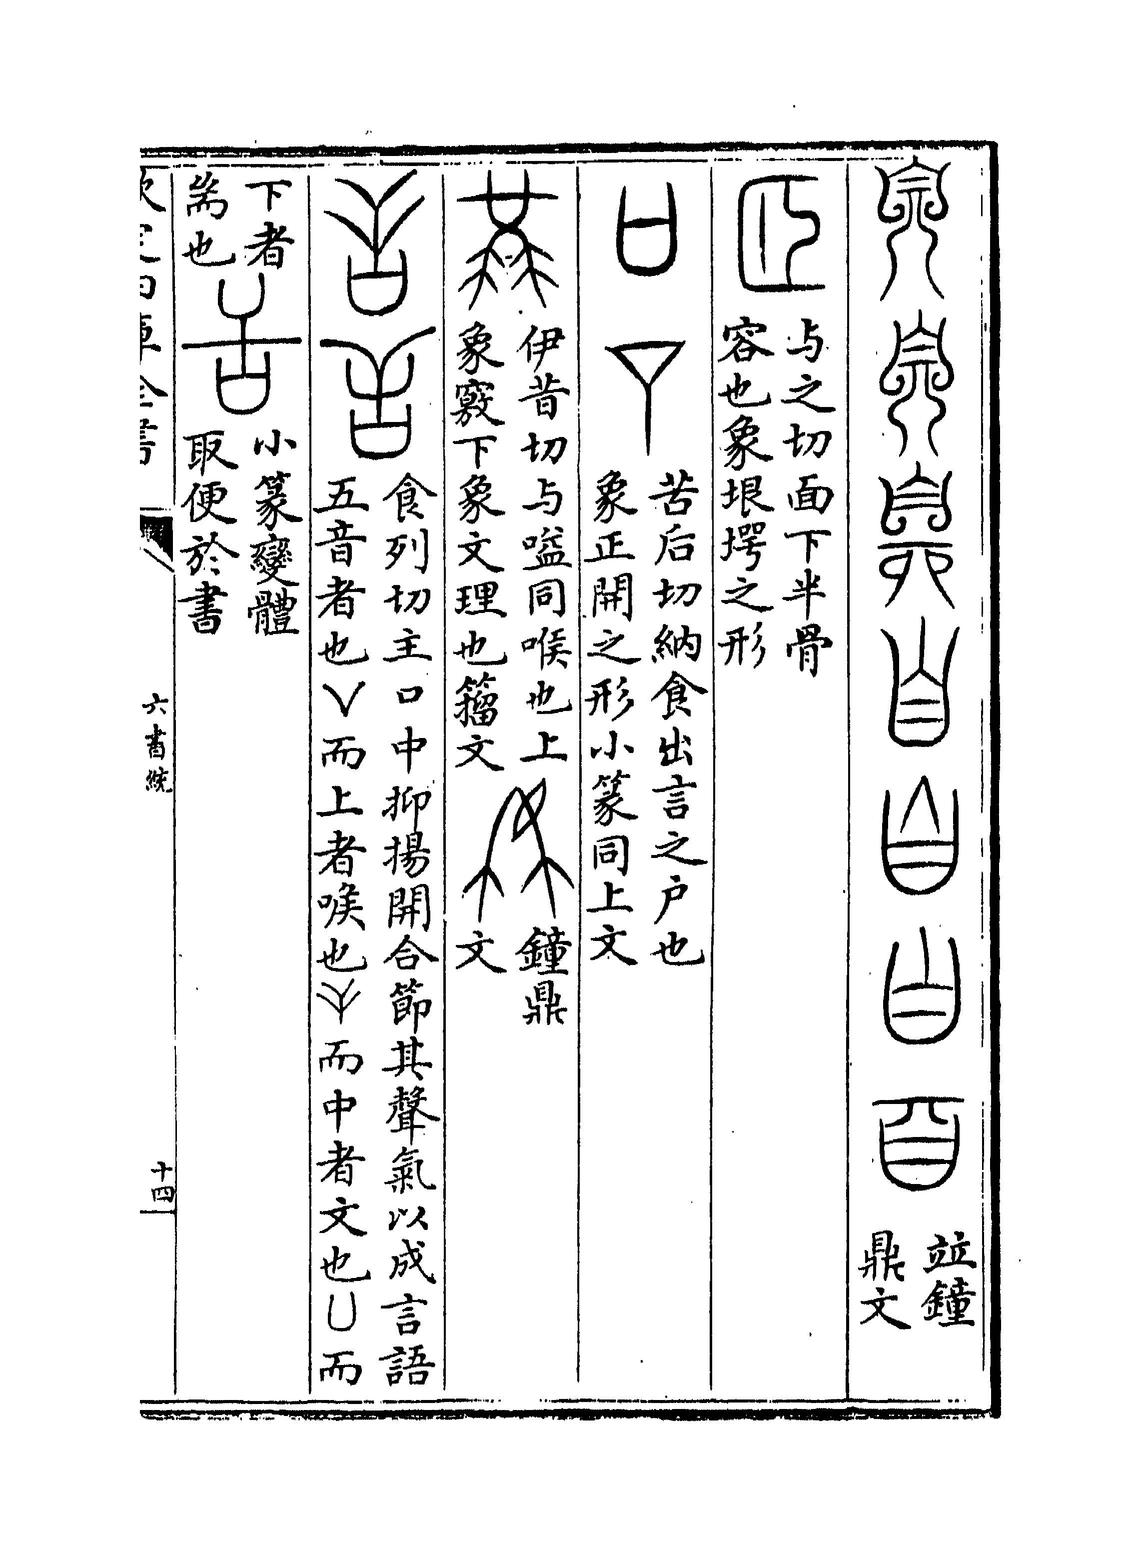 竝鐘
鼎文
与之切面下半骨
容也象垠堮之形
苦后切納食出言之户也
象正開之形小篆同上文
伊昔切与嗌同喉也上
象竅下象文理也籀文
鐘鼎
文
食列切主口中抑揚開合節其聲氣以成言語
五音者也而上者喉也而中者文也凵而
下者
耑也
小篆變體
取便於書
欽定四庫全書
六書統
十四